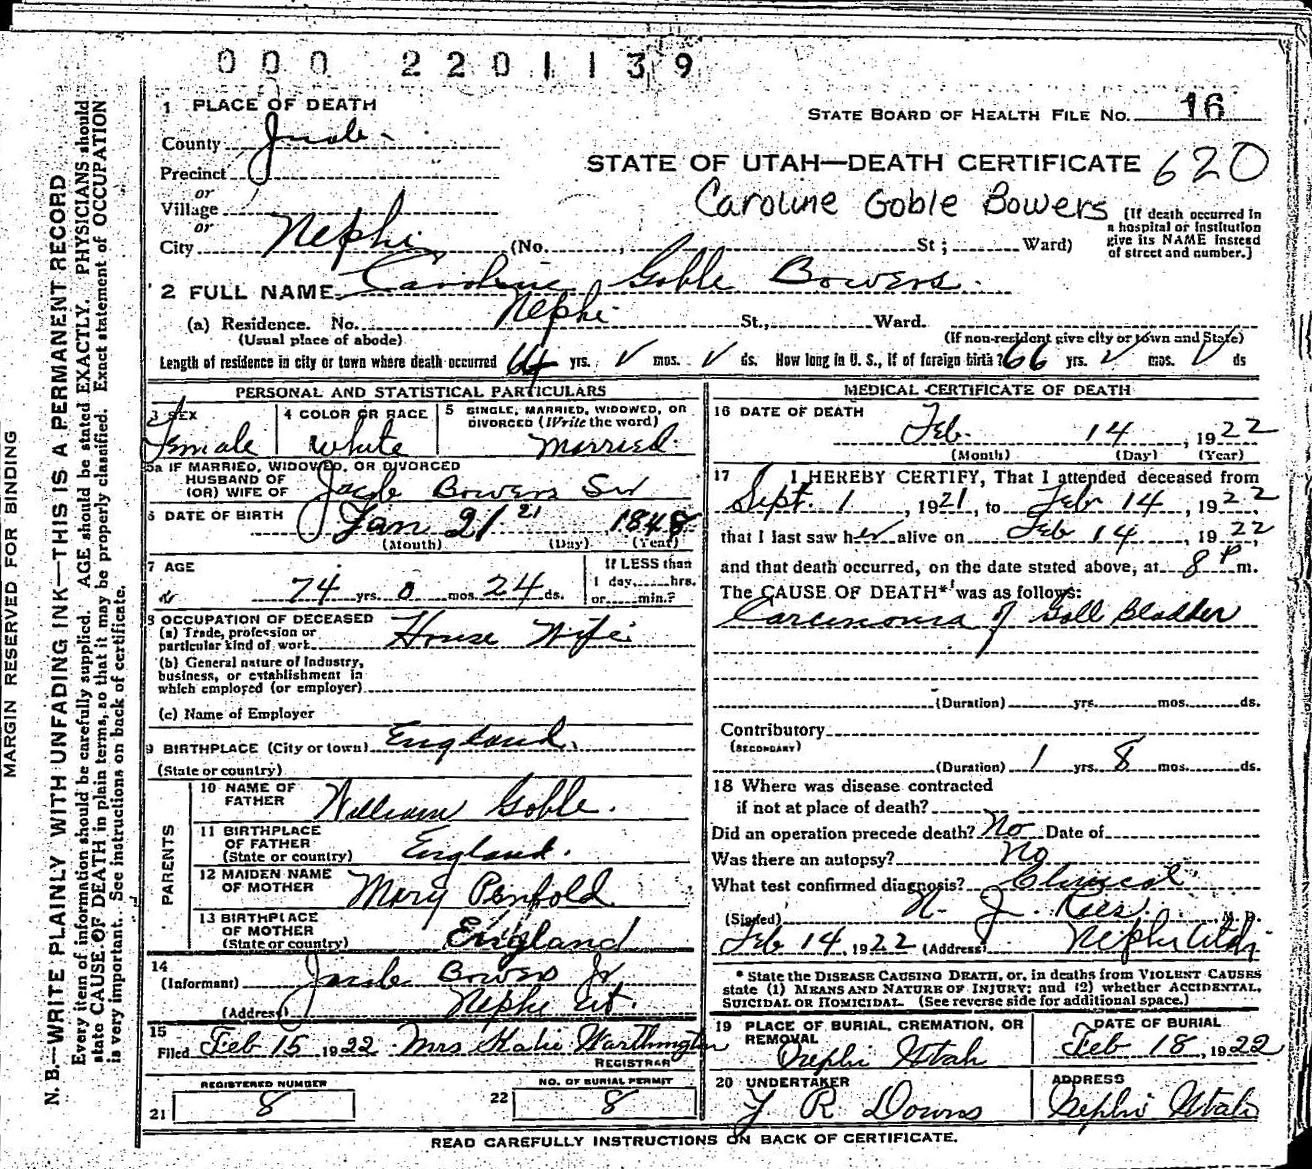 000 2201139
1 PLACE OF DEATH
STATE BOARD OF HEALTH FILE NO. 16
County Juab
STATE OF UTAH—DEATH CERTIFICATE 620
Precinct
or
Village
Caroline Goble Bowers
[If death occurred in a hospital or institution give its NAME instead of street and number.]
or
City Nephi (No. , St; Ward)
2 FULL NAME Caroline Goble Bowers
(a) Residence. No. Nephi St., Ward.
(Usual place of abode) (If non-resident give city or town and State)
Length of residence in city or town where death occurred 64 yrs. mos. ds. How long in U. S., if of foreign birth? 66 yrs. mos. ds
PERSONAL AND STATISTICAL PARTICULARS
3 SEX Female
4 COLOR OR RACE White
5 SINGLE, MARRIED, WIDOWED, OR DIVORCED (Write the word) Married.
5a IF MARRIED, WIDOWED, OR DIVORCED
HUSBAND OF
(OR) WIFE OF Jacob Bowers Sr
6 DATE OF BIRTH Jan 21 21 1848
(Month) (Day) (Year)
7 AGE 74 yrs. 0 mos. 24 ds.
If LESS than
1 day, hrs.
or min.?
8 OCCUPATION OF DECEASED
(a) Trade, profession or
particular kind of work House Wife
(b) General nature of Industry,
business, or establishment in
which employed (or employer)
(c) Name of Employer
9 BIRTHPLACE (City or town) England.
(State or country)
PARENTS
10 NAME OF
FATHER William Goble.
11 BIRTHPLACE
OF FATHER
(State or country) England.
12 MAIDEN NAME
OF MOTHER Mary Penfold
13 BIRTHPLACE
OF MOTHER
(State or country) England
14
(Informant) Jacob Bowers Jr
(Address) Nephi Ut.
15
Filed Feb 15 1922 Mrs Katie Warthington
REGISTRAR
REGISTERED NUMBER
21 8
NO. OF BURIAL PERMIT
22 8
MEDICAL CERTIFICATE OF DEATH
16 DATE OF DEATH
Feb. 14, 1922
(Month) (Day) (Year)
17 I HEREBY CERTIFY, That I attended deceased from
Sept. 1, 1921, to Feb 14, 1922,
that I last saw her alive on Feb 14, 1922,
and that death occurred, on the date stated above, at 8 P m.
The CAUSE OF DEATH* was as follows:
Carcinoma of Gall Bladder
(Duration) yrs. mos. ds.
Contributory
(SECONDARY)
(Duration) 1 yrs. 8 mos. ds.
18 Where was disease contracted
if not at place of death?
Did an operation precede death? No Date of
Was there an autopsy? No
What test confirmed diagnosis? Clinical
(Signed) N. J. Rees, M. D.
Feb 14, 1922 (Address) Nephi Utah
* State the DISEASE CAUSING DEATH, or, in deaths from VIOLENT CAUSES
state (1) MEANS AND NATURE OF INJURY; and (2) whether ACCIDENTAL,
SUICIDAL or HOMICIDAL. (See reverse side for additional space.)
19 PLACE OF BURIAL, CREMATION, OR
REMOVAL
Nephi Utah
DATE OF BURIAL
Feb 18, 1922
20 UNDERTAKER
R Downs
ADDRESS
Nephi Utah
READ CAREFULLY INSTRUCTIONS ON BACK OF CERTIFICATE.
MARGIN RESERVED FOR BINDING
N. B.—WRITE PLAINLY WITH UNFADING INK—THIS IS A PERMANENT RECORD
Every item of information should be carefully supplied. AGE should be stated EXACTLY. PHYSICIANS should
state CAUSE OF DEATH in plain terms, so that it may be properly classified. Exact statement of OCCUPATION
is very important. See instructions on back of certificate.